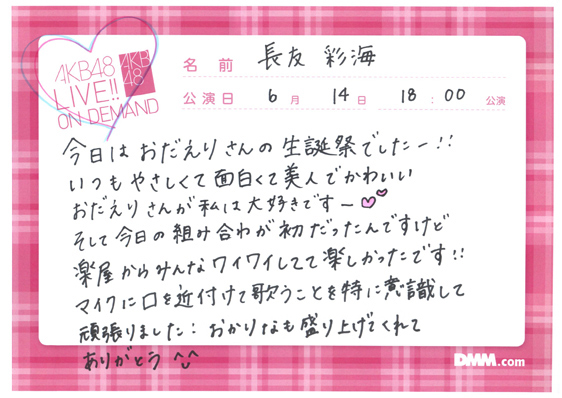 AKB48
LIVE!!
ON DEMAND
AKB
48
名 前 長友 彩海
公演日 6 月 14 日 18 : 00 公演
今日は おだえりさんの 生誕祭でしたー!!
いつも やさしくて 面白くて 美人で かわいい
おだえりさんが 私は 大好きですー
そして 今日の 組み合わが 初だったんですけど
楽屋から みんな ワイワイしてて 楽しかったです!!
マイクに 口を 近付けて 歌うことを 特に 意識して
頑張りました! おかりなも 盛り上げてくれて
ありがとう ^_^
DMM.com